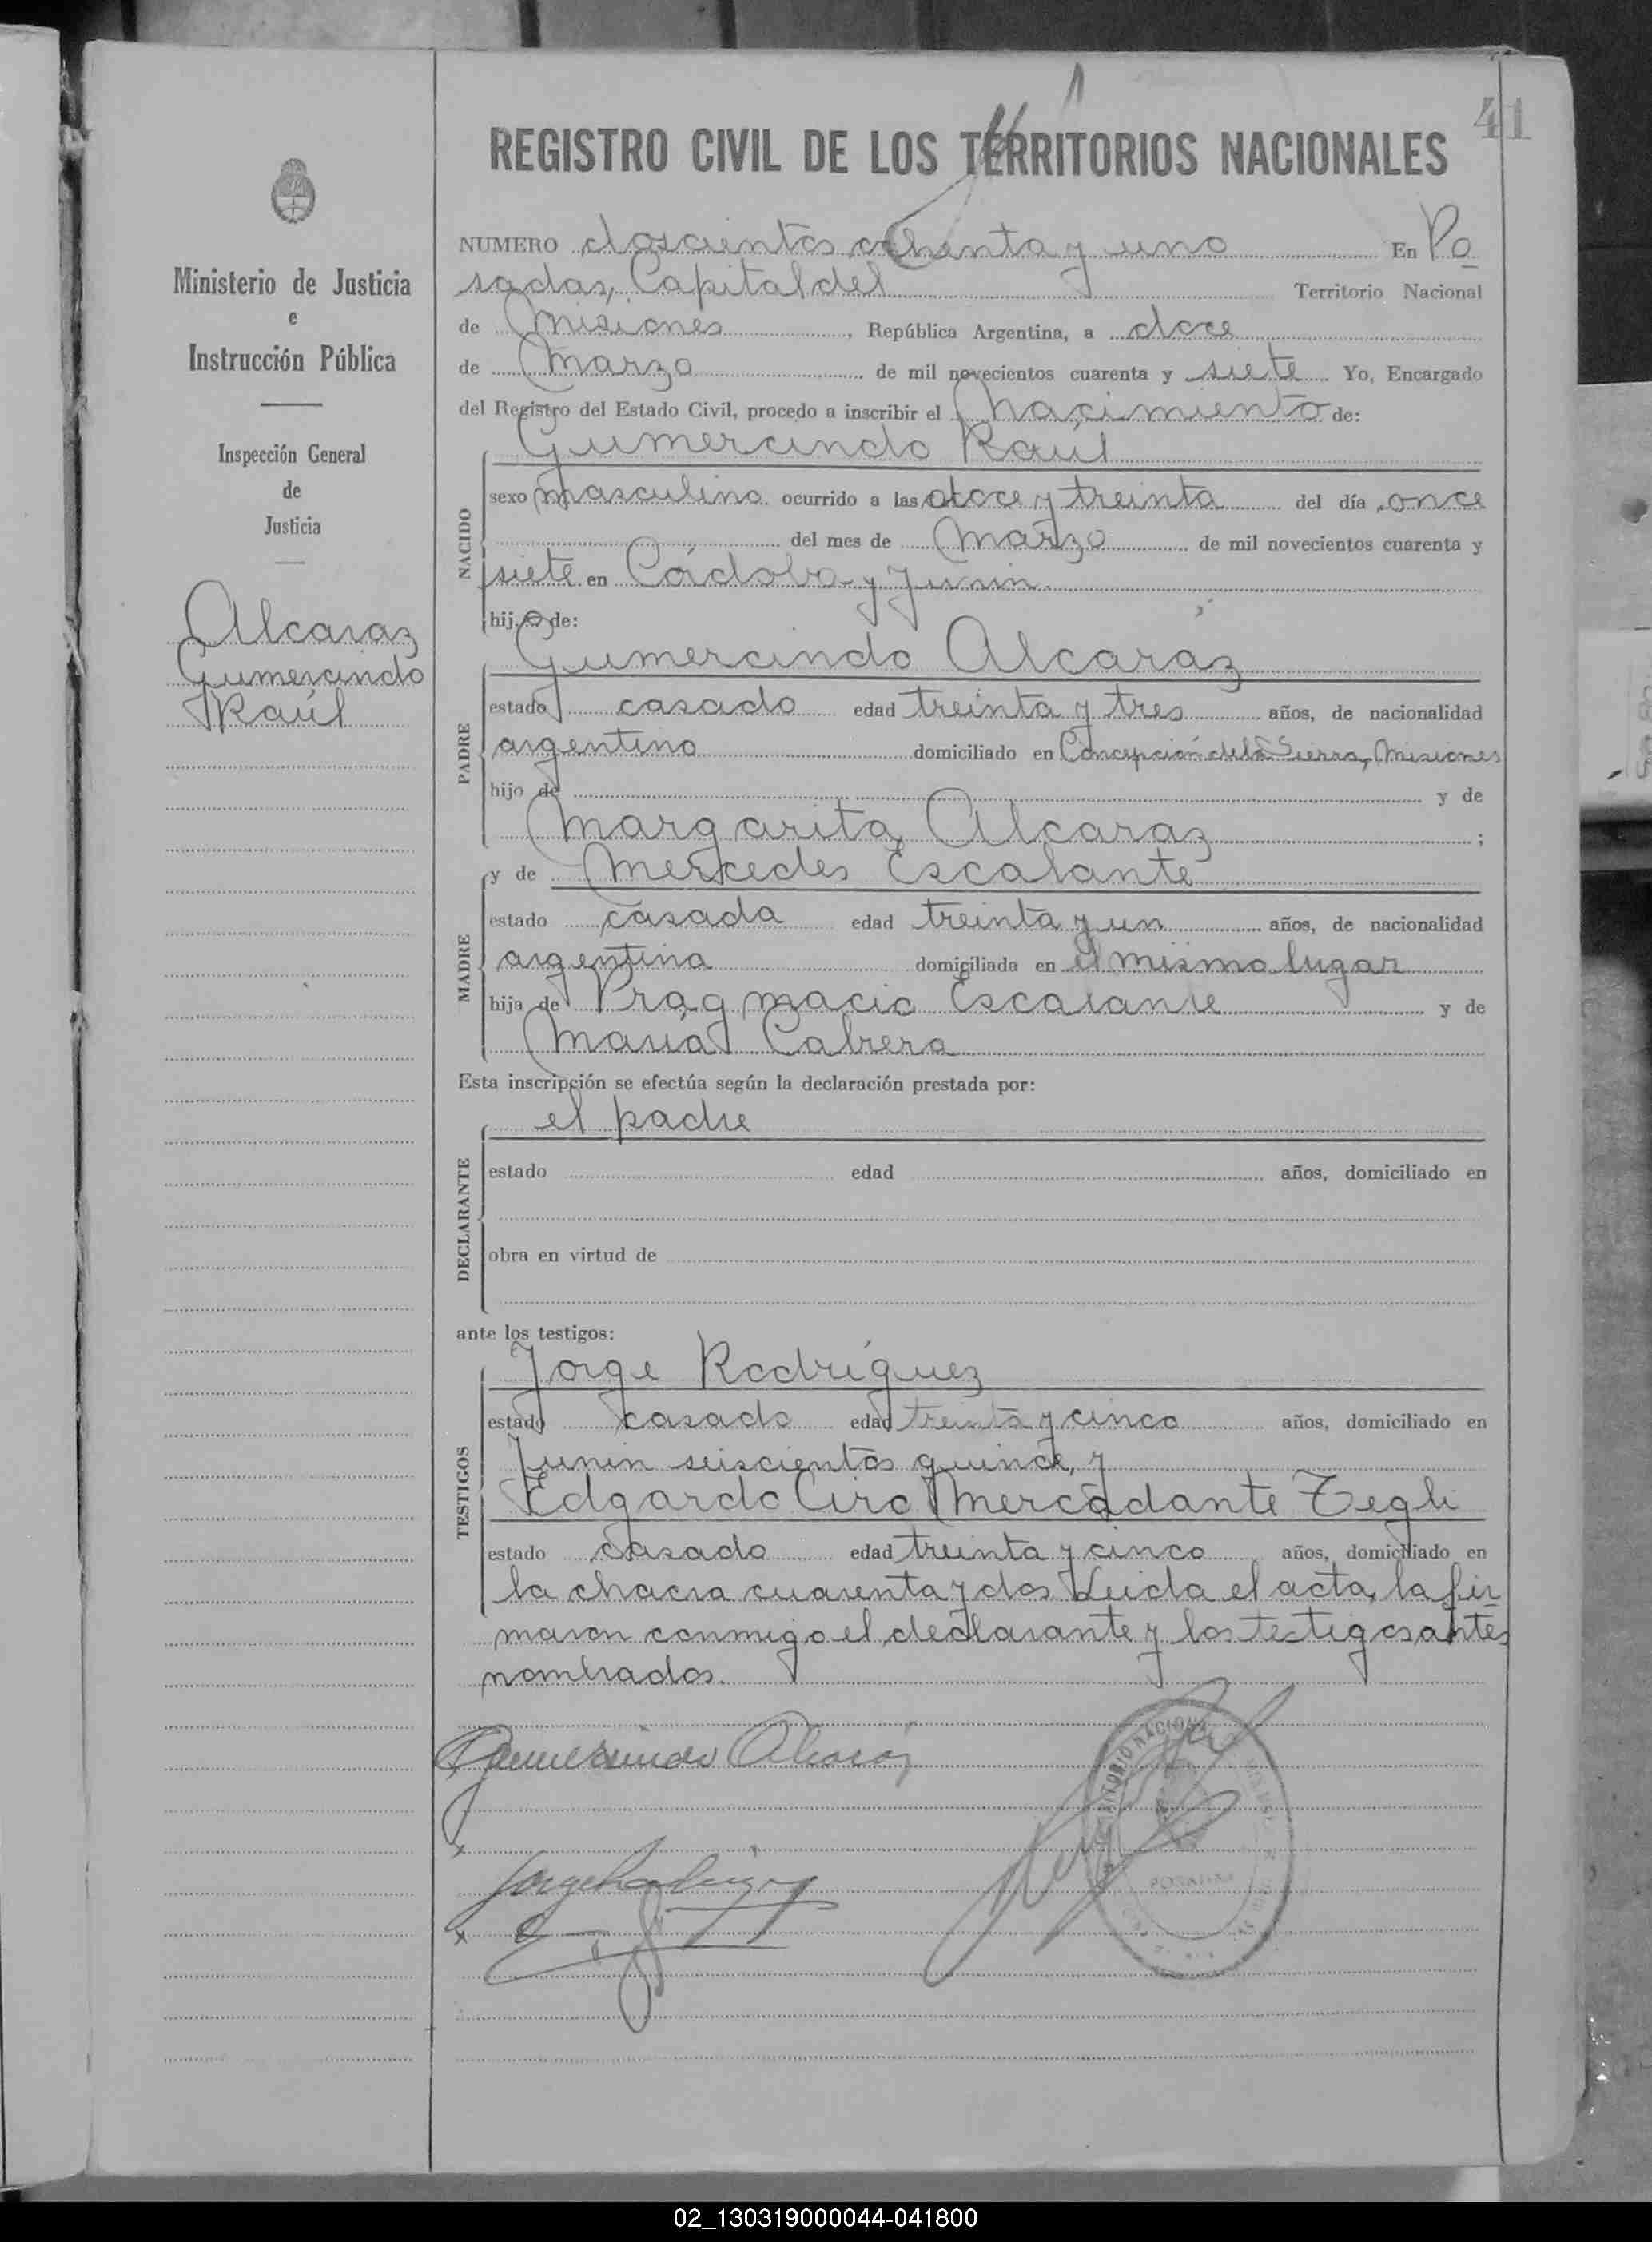 41
REGISTRO CIVIL DE LOS TERRITORIOS NACIONALES
Ministerio de Justicia
e
Instrucción Pública
Inspección General
de
Justicia
Alcaraz
Gumercindo
Raúl
NUMERO doscientos ochenta y uno En Po
sadas, Capital del Territorio Nacional
de Misiones, República Argentina, a doce
de Marzo de mil novecientos cuarenta y siete Yo, Encargado
del Registro del Estado Civil, procedo a inscribir el Nacimiento de:
NACIDO
Gumercindo Raúl
sexo masculino ocurrido a las doce y treinta del día once
del mes de Marzo de mil novecientos cuarenta y
siete en Córdoba y Junin.
hijo de:
PADRE
Gumercindo Alcaráz
estado casado edad treinta y tres años, de nacionalidad
argentino domiciliado en Concepción de la Sierra, Misiones
hijo de y de
Margarita Alcaraz;
MADRE
y de Mercedes Escalante
estado casada edad treinta y un años, de nacionalidad
argentina domiciliada en el mismo lugar
hija de Pragmacio Escalante y de
María Cabrera
Esta inscripción se efectúa según la declaración prestada por:
DECLARANTE
el padre
estado edad años, domiciliado en
obra en virtud de
ante los testigos:
TESTIGOS
Jorge Rodríguez
estado casado edad treinta y cinco años, domiciliado en
Junin seiscientos quince, y
Edgardo Ciro Mercadante Tegli
estado casado edad treinta y cinco años, domiciliado en
la chacra cuarenta y dos Leida el acta, la fir
maron conmigo el declarante y los testigos antes
nombrados.
Gumersindo Alcaraz
Jorge Rodriguez
TERRITORIO NACIONAL
POSADAS
02_130319000044-041800